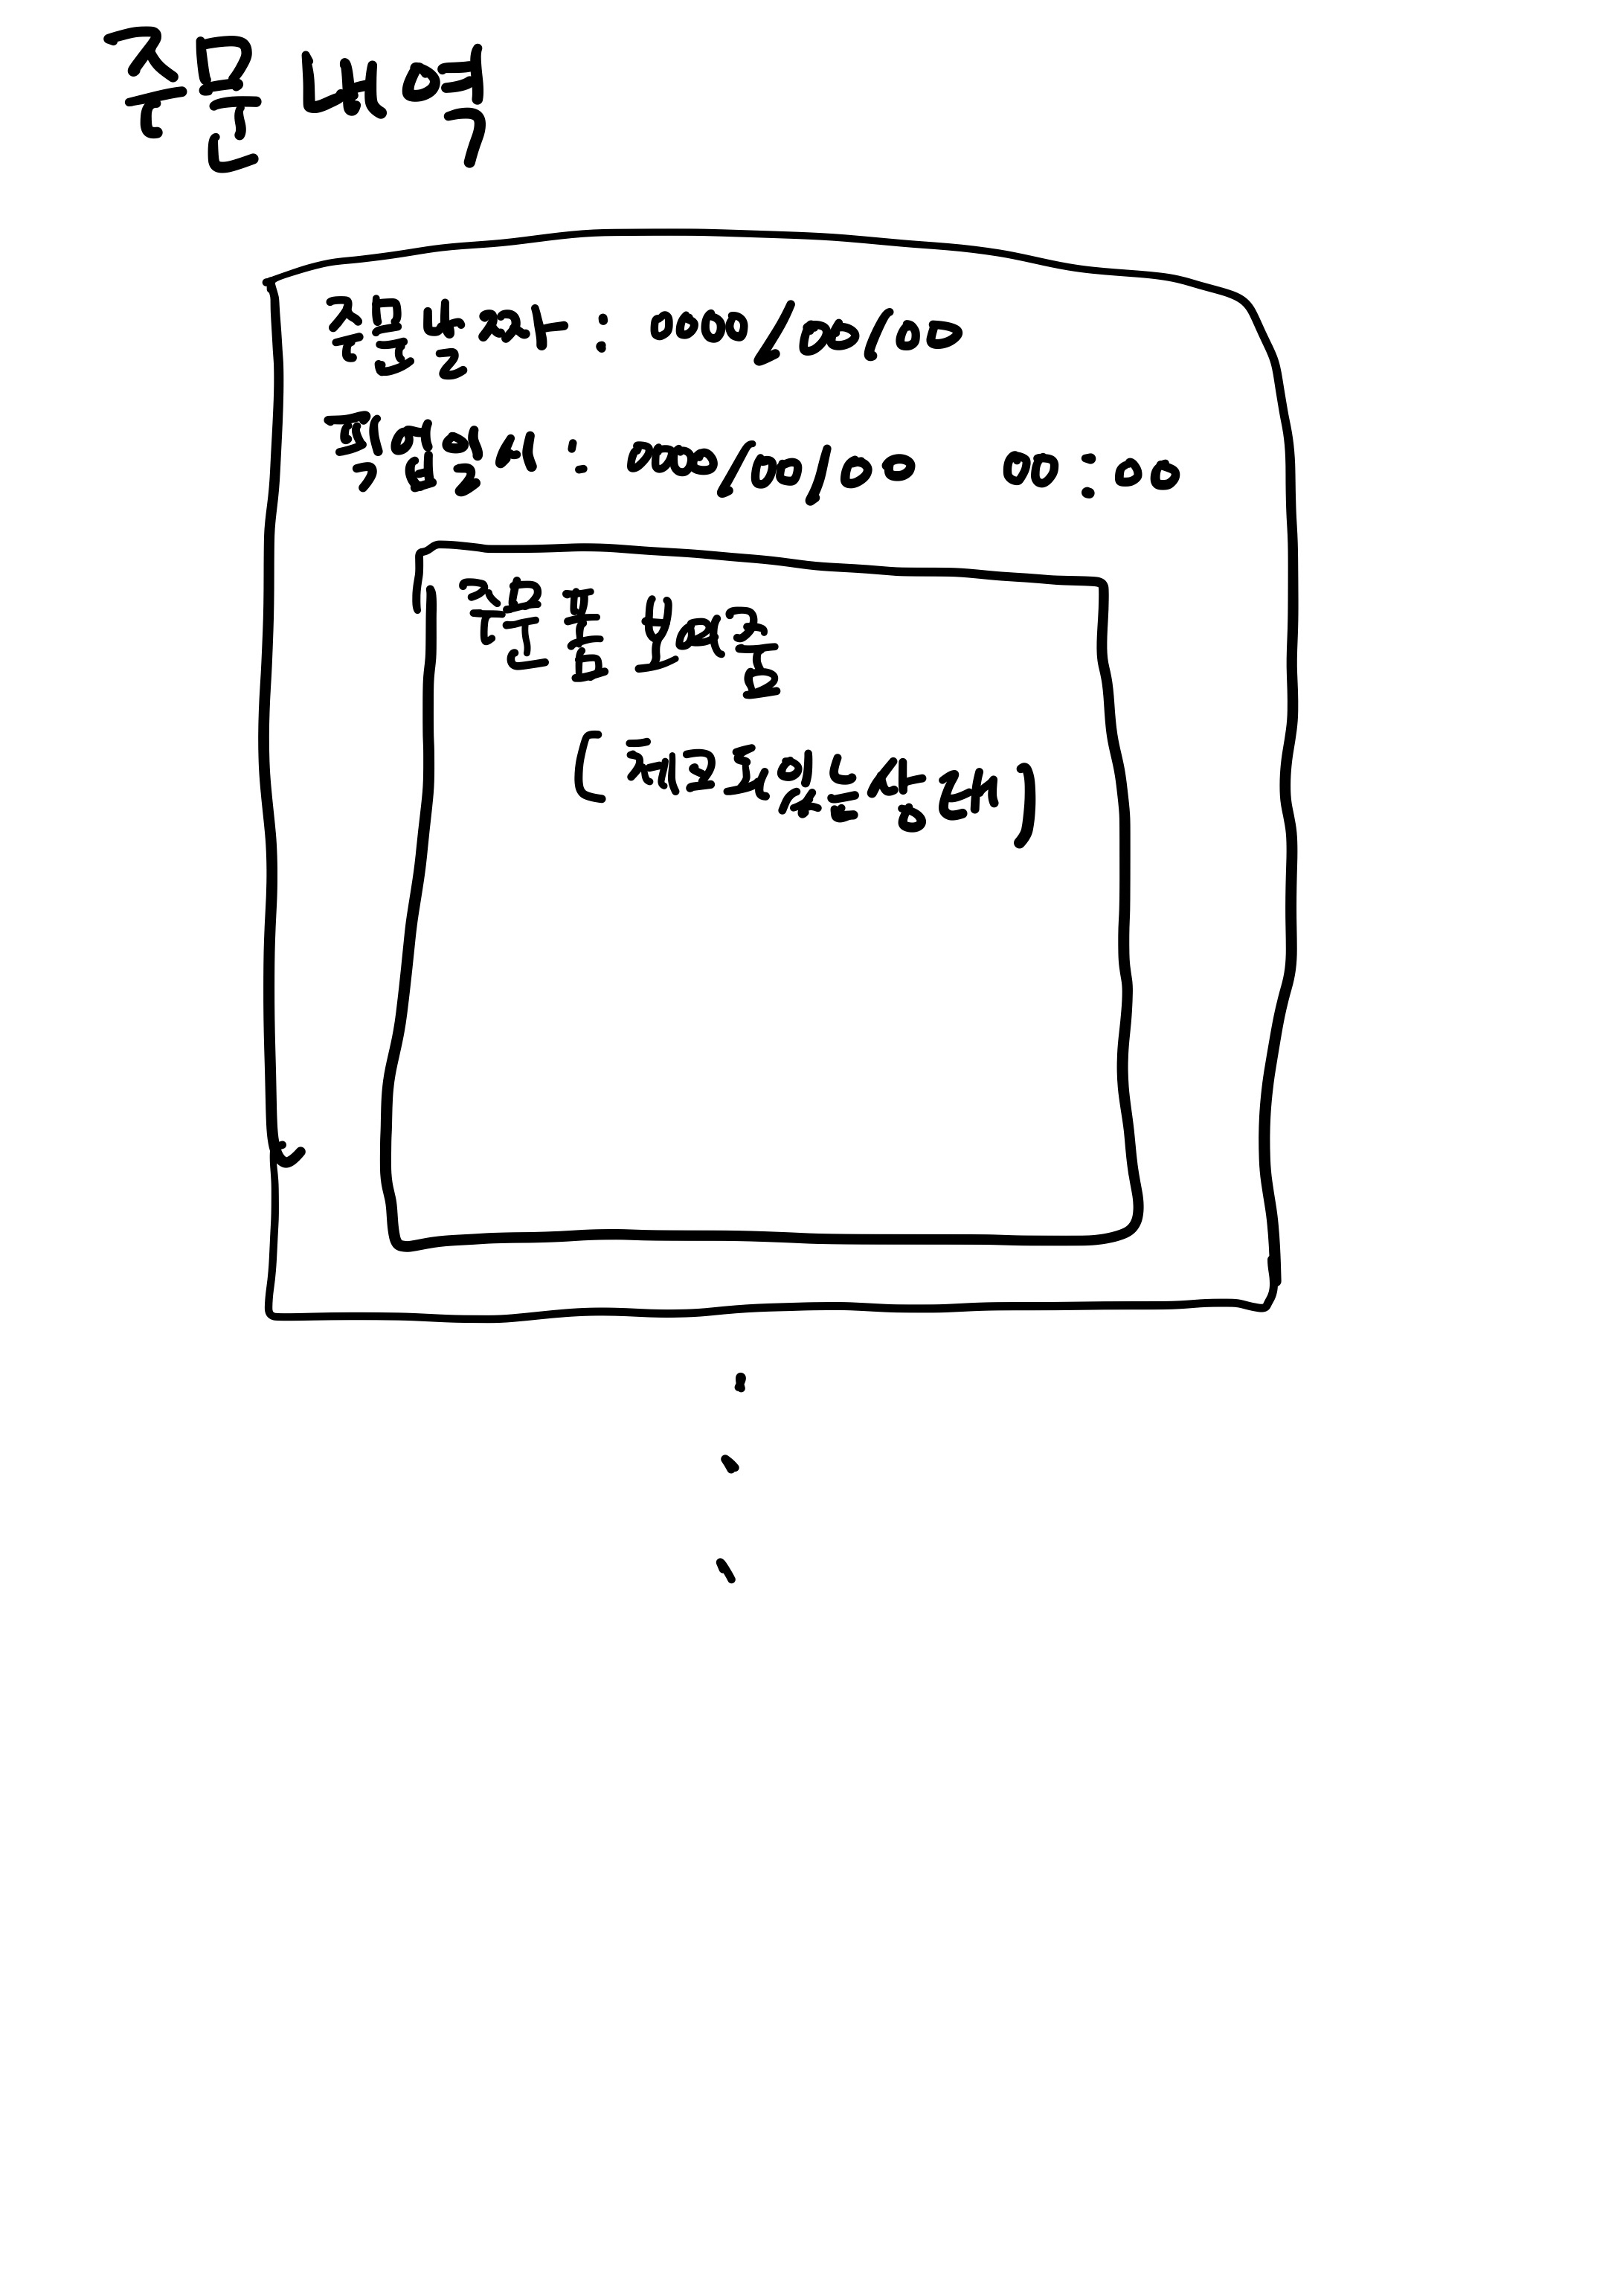 주문 내역
주문날짜 : 0000/00/00
픽업일시 : 0000/00/00 00:00
주문품 보여줌
(체크되있는상태)